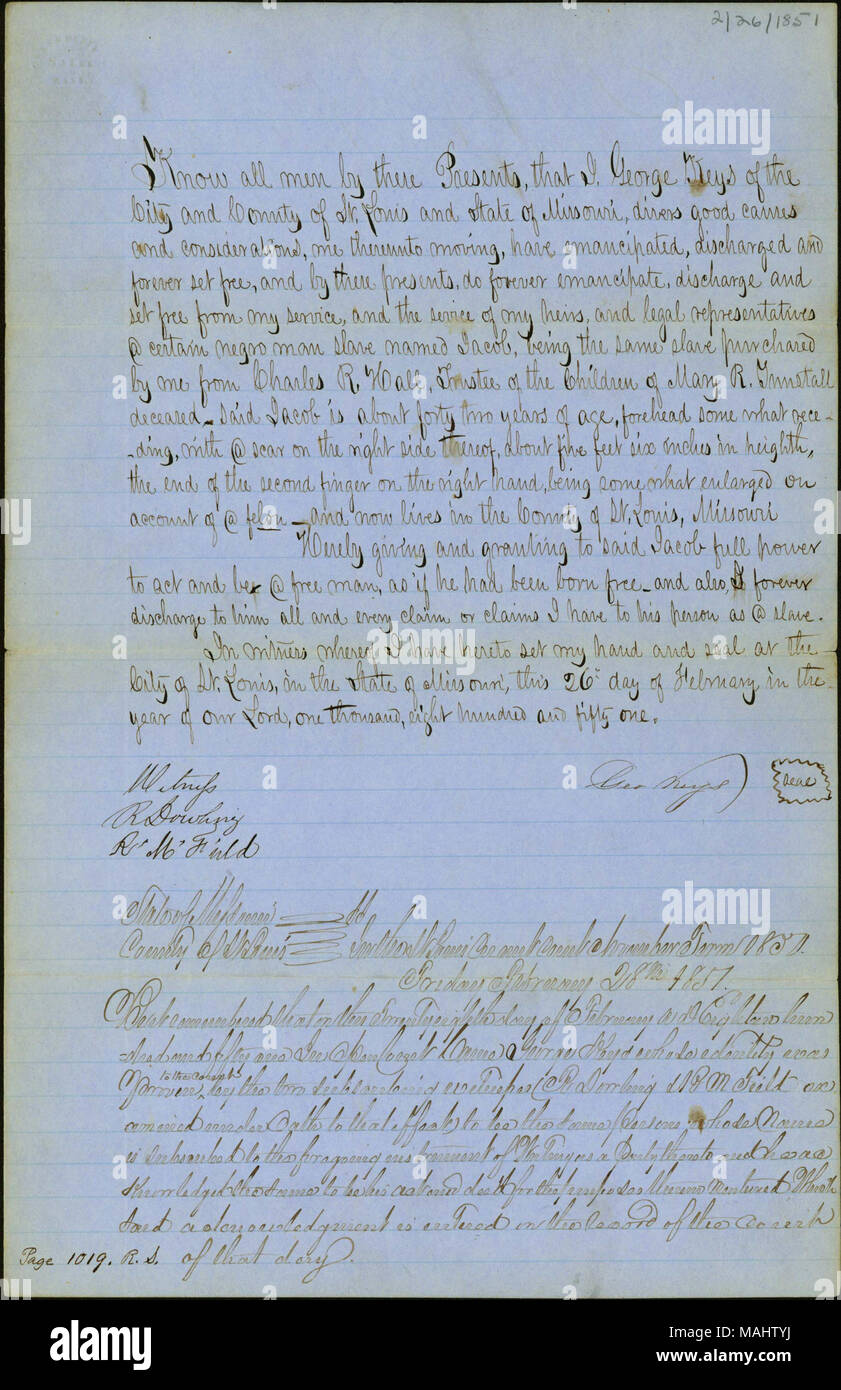 2/26/1851
Know all men by these Presents, that I, George Keys of the
City and County of St. Louis and State of Missouri, divers good causes
and considerations, me thereunto moving, have emancipated, discharged and
forever set free, and by these presents, do forever emancipate, discharge and
set free from my service, and the service of my heirs, and legal representatives
@ certain negro man slave named Jacob, being the same slave purchased
by me from Charles R. Hall, Trustee of the Children of Mary R. Tunstall
deceased - said Jacob is about forty two years of age, forehead some what rece-
-ding, with @ scar on the right side thereof, about five feet six inches in heighth,
the end of the second finger on the right hand, being some what enlarged on
account of @ felon - and now lives in the County of St. Louis, Missouri
Hereby giving and granting to said Jacob full power
to act and be @ free man, as if he had been born free - and also, I forever
discharge to him all and every claim or claims I have to his person as @ slave.
In witness whereof I have hereto set my hand and seal at the
City of St. Louis, in the State of Missouri, this 26th day of February in the
year of our Lord, one thousand, eight hundred and fifty one.
Witness Geo Keys) Seal
R Dowling
R. M. Field
State of Missouri ss
County of St Louis In the St Louis Circuit Court November Term 1850.
Friday February 28th 1851.
Be it remembered that on this Twenty eighth day of February A.D. Eighteen hun
dred and fifty one In Open Court Came George Keys whose identity was
to the court
Proven by the two subscribing witnesses R Dowling & R M Field ex
amined under oath to that effect to be the same person whose Name
is subscribed to the foregoing instrument of Writing as a Party thereto and he ac
knowledged the same to be his act and deed for the purposes therein mentioned Which
said acknowledgment is entered on the record of the court
Page 1019. R. S. of that day.
alamy stock photo
alamy
Image ID: MAHTYJ
www.alamy.com